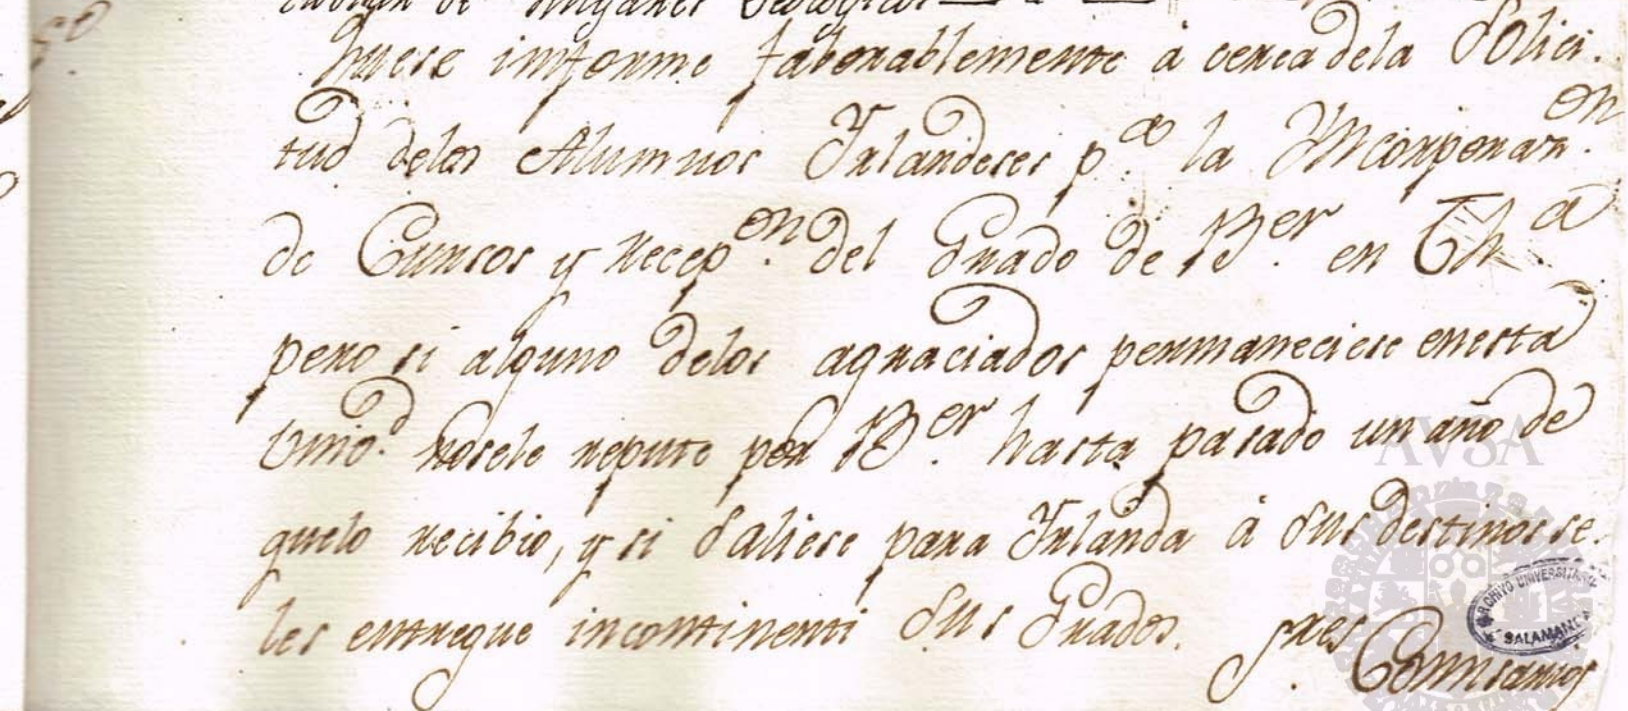 5º
de Lugares Teologicos
Qué se informe faborablemente à cerca dela Solici.
tud delos Alumnos Irlandeses p.ª la Yncorporaz.on
de Cursos y recep.on del Grado de B.er en Th.ª
pero si alguno delos agraciados permaneciese enesta
Univ.d nosele repute por B.er hasta pasado un año de
quelo recibio, y si saliese para Irlanda à sus destinos se.
les entregue incontinenti sus Grados. Sres
Comisarios
AVSA
ARCHIVO UNIVERSITARIO
SALAMANCA